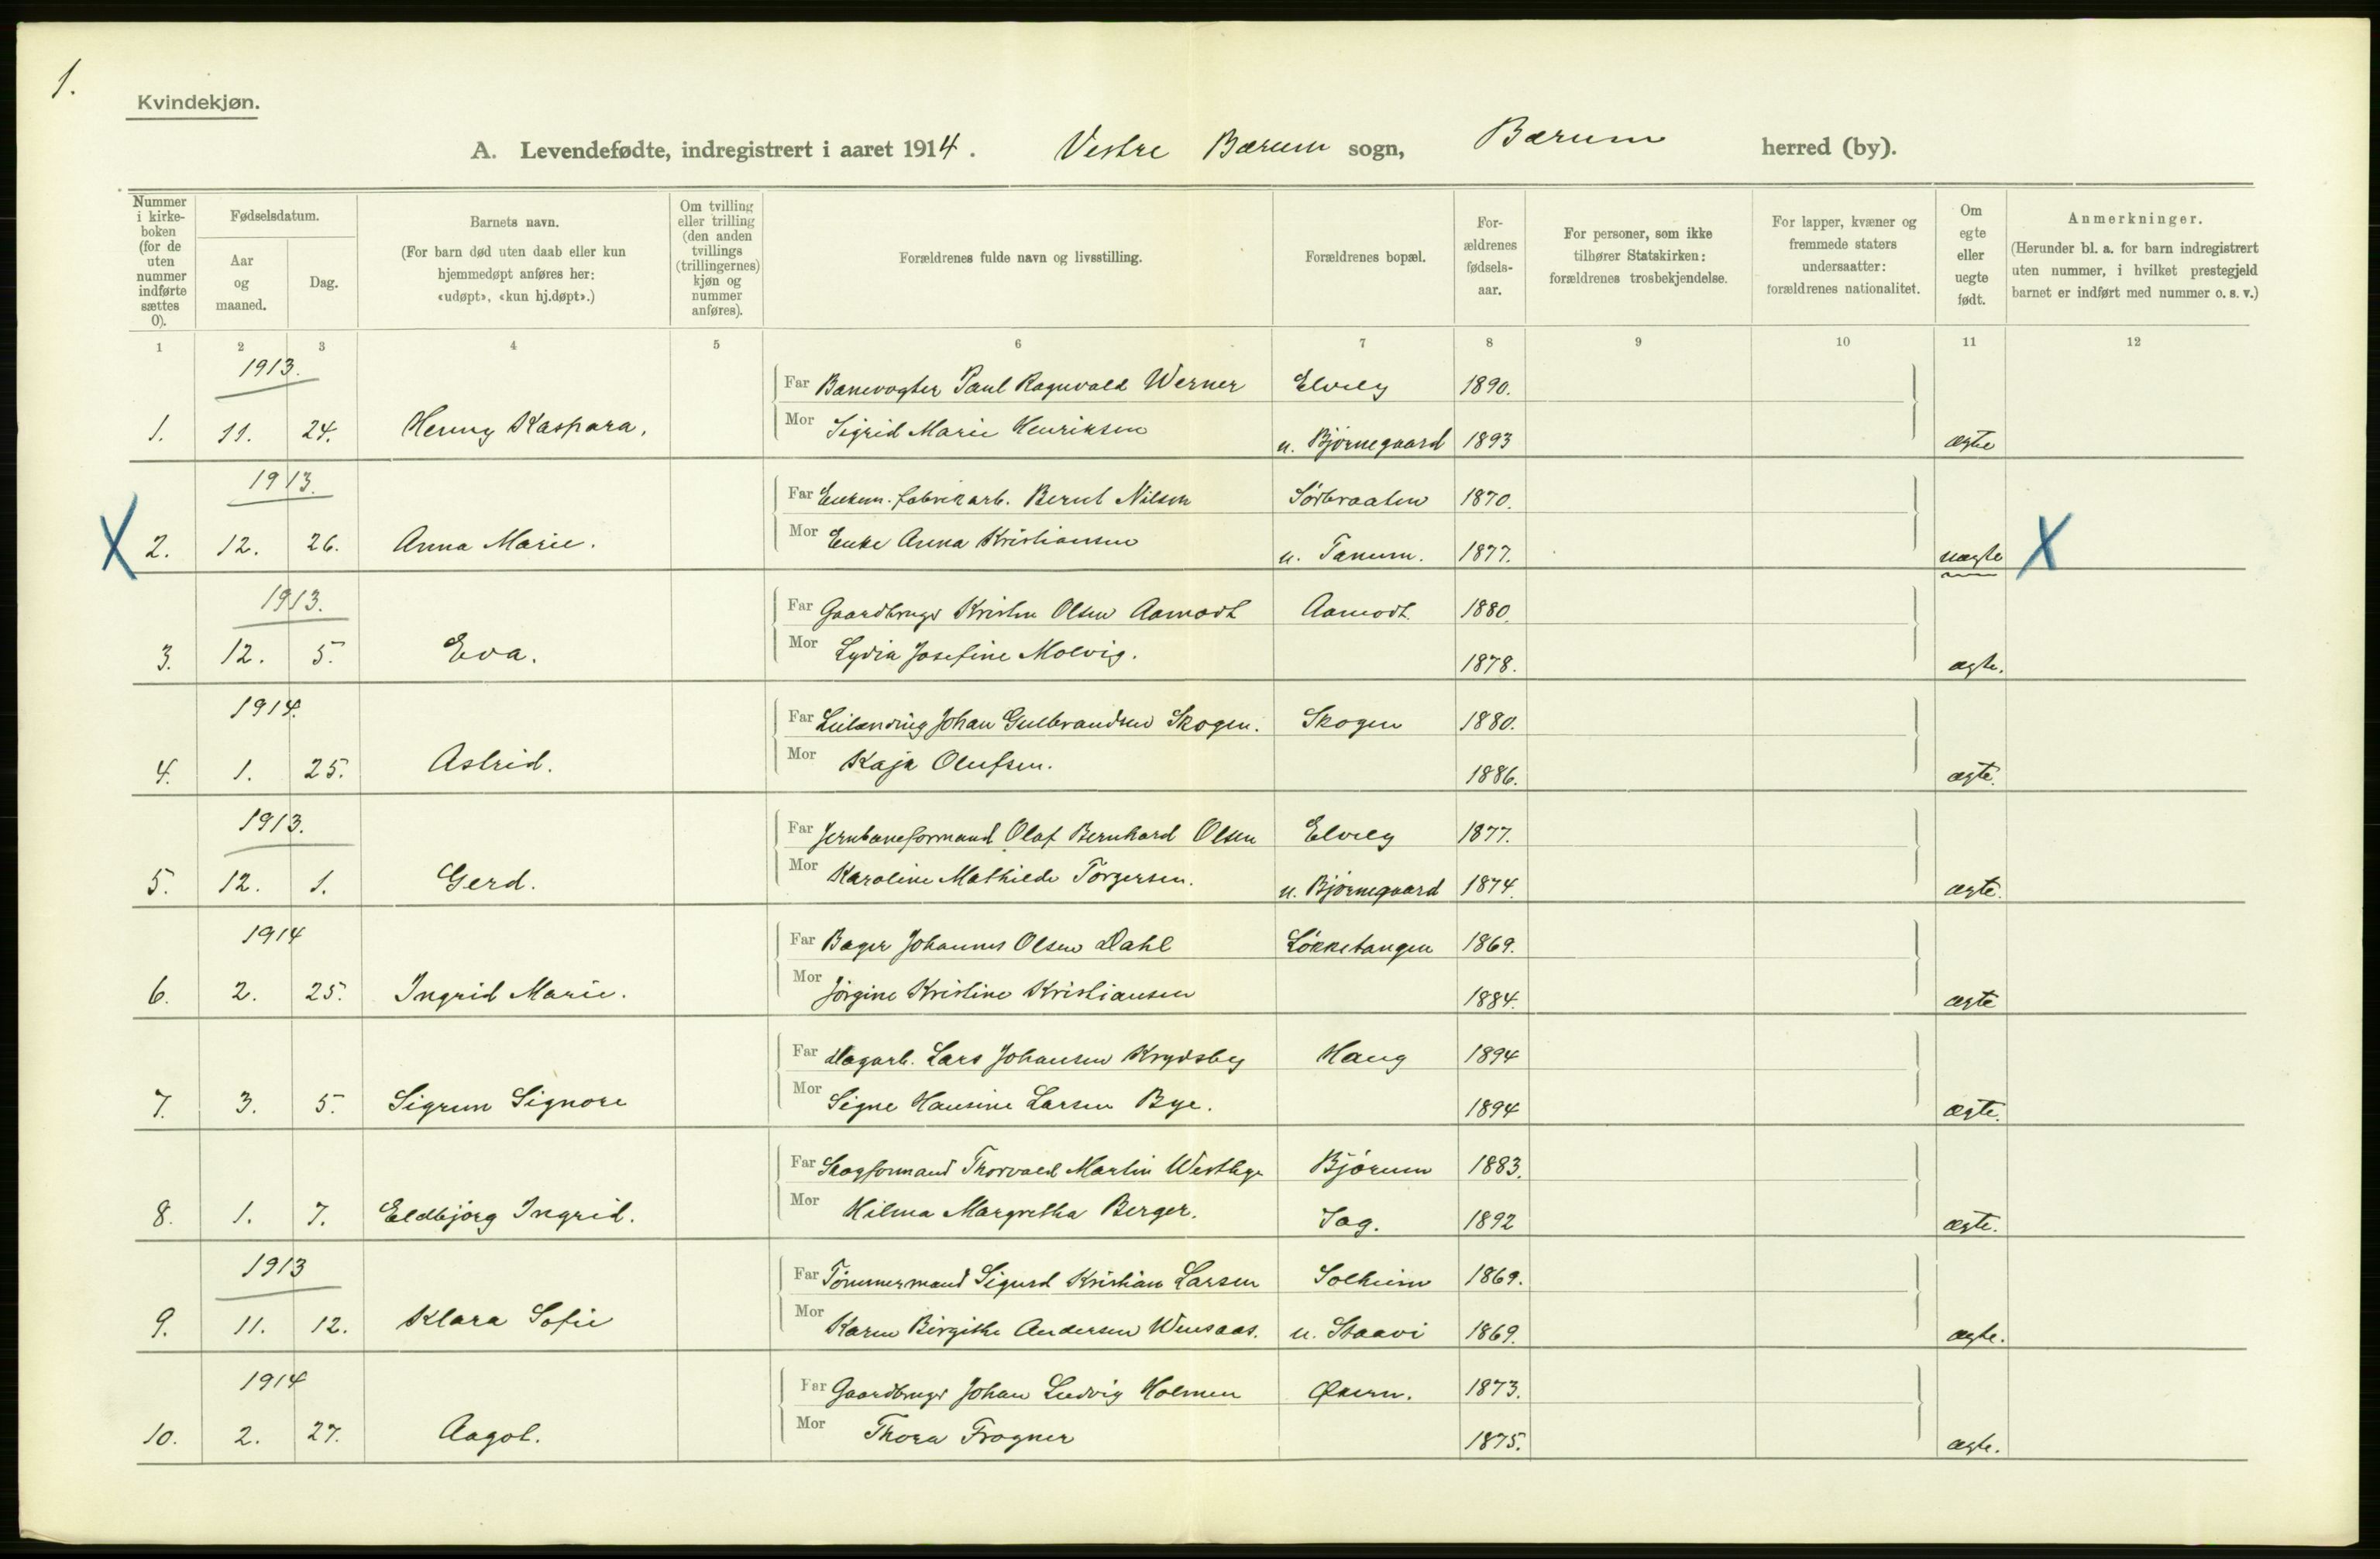 1.
Kvindekjøn.
A. Levendefødte, indregistrert i aaret 1914. Vestre Bærum sogn, Bærum herred (by).
Nummer i kirke- boken (for de uten nummer indførte sættes 0).
Fødselsdatum.
Aar og maaned.
Dag.
Barnets navn.
(For barn død uten daab eller kun hjemmedøpt anføres her: «udøpt», «kun hj.døpt».)
Om tvilling eller trilling (den anden tvillings (trillingernes) kjøn og nummer anføres).
Forældrenes fulde navn og livsstilling.
Forældrenes bopæl.
For- ældrenes fødsels- aar.
For personer, som ikke tilhører Statskirken: forældrenes trosbekjendelse.
For lapper, kvæner og fremmede staters undersaatter: forældrenes nationalitet.
Om egte eller uegte født.
Anmerkninger.
(Herunder bl. a. for barn indregistrert uten nummer, i hvilket prestegjeld barnet er indført med nummer o. s. v.)
1 2 3 4 5 6 7 8 9 10 11 12
1913.
Far Banevogter Paul Ragnvald Werner Elvely 1890.
1. 11. 24. Henny Kaspara, Mor Sigrid Marie Henriksen u. Bjørnegaard 1893 ægte
1913.
Far Enkem. fabrikarb. Bernt Nilsen Sørbraaten 1870.
X 2. 12. 26. Anna Marie. Mor Enke Anna Kristiansen u. Tanum. 1877. uægte X
1913.
Far Gaardbruger Kristen Olsen Aamodt Aamodt. 1880.
3. 12. 5. Eva. Mor Lydia Josefine Molvig. 1878. ægte.
1914.
Far Leilænding Johan Gulbrandsen Skogen. Skogen 1880.
4. 1. 25. Astrid. Mor Kaja Olufsen. 1886. ægte.
1913.
Far Jernbaneformand Olaf Bernhard Olsen Elvely 1877.
5. 12. 1. Gerd. Mor Karoline Mathilde Torgersen. u. Bjørnegaard 1874. ægte.
1914
Far Bager Johannes Olsen Dahl Løkketangen 1869.
6. 2. 25. Ingrid Marie. Mor Jørgine Kristine Kristiansen 1884. ægte
Far Dagarb. Lars Johansen Krydsby Haug 1894
7. 3. 5. Sigrun Signore Mor Signe Hansine Larsen Bye. 1894 ægte.
Far Skogformand Thorvald Martin Westbye Bjørum 1883.
8. 1. 7. Eldbjørg Ingrid. Mor Hilma Margretha Berger. Sag. 1892 ægte.
1913
Far Tømmermand Sigurd Kristian Larsen Solheim 1869.
9. 11. 12. Klara Sofie Mor Karen Birgithe Andersen Wensaas. u. Staavi 1869. ægte.
1914
Far Gaardbruger Johan Ludvig Holmen Økern. 1873.
10. 2. 27. Aagot. Mor Thora Frogner 1875. ægte.